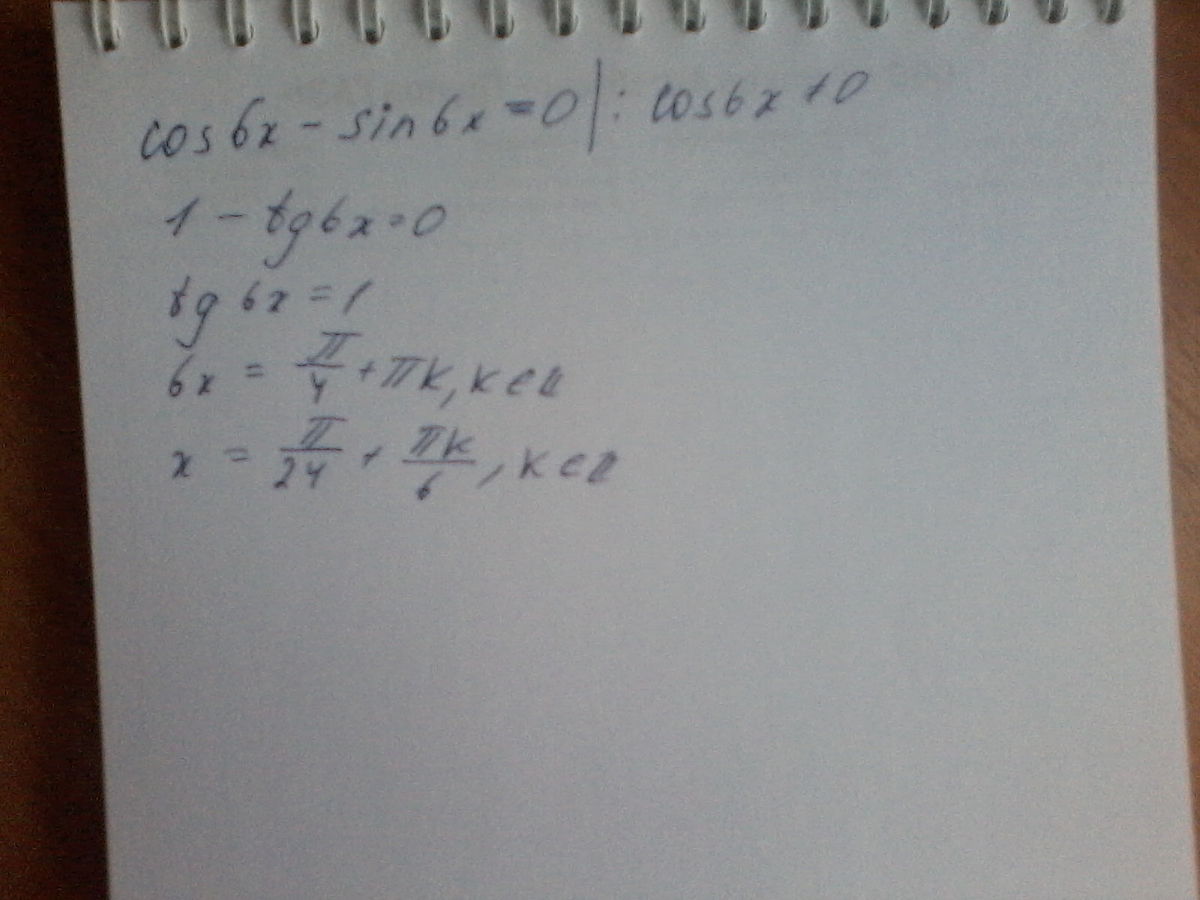 cos 6x - sin 6x = 0 | : cos 6x ≠ 0
1 - tg 6x = 0
tg 6x = 1
6x = π/4 + πk, k ∈ Z
x = π/24 + πk/6, k ∈ Z